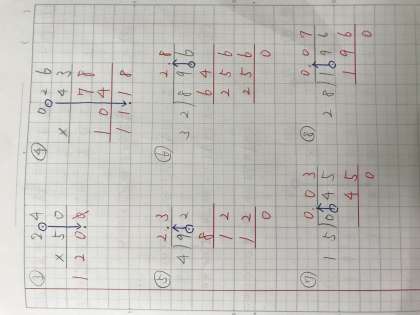 ③ 2.4
× 50
120.0
④ 0.26
× 43
78
104
11.18
⑤ 2.3
4)9.2
8
12
12
0
⑥ 2.8
32)89.6
64
256
256
0
⑦ 0.03
15)0.45
45
0
⑧ 0.07
28)1.96
196
0